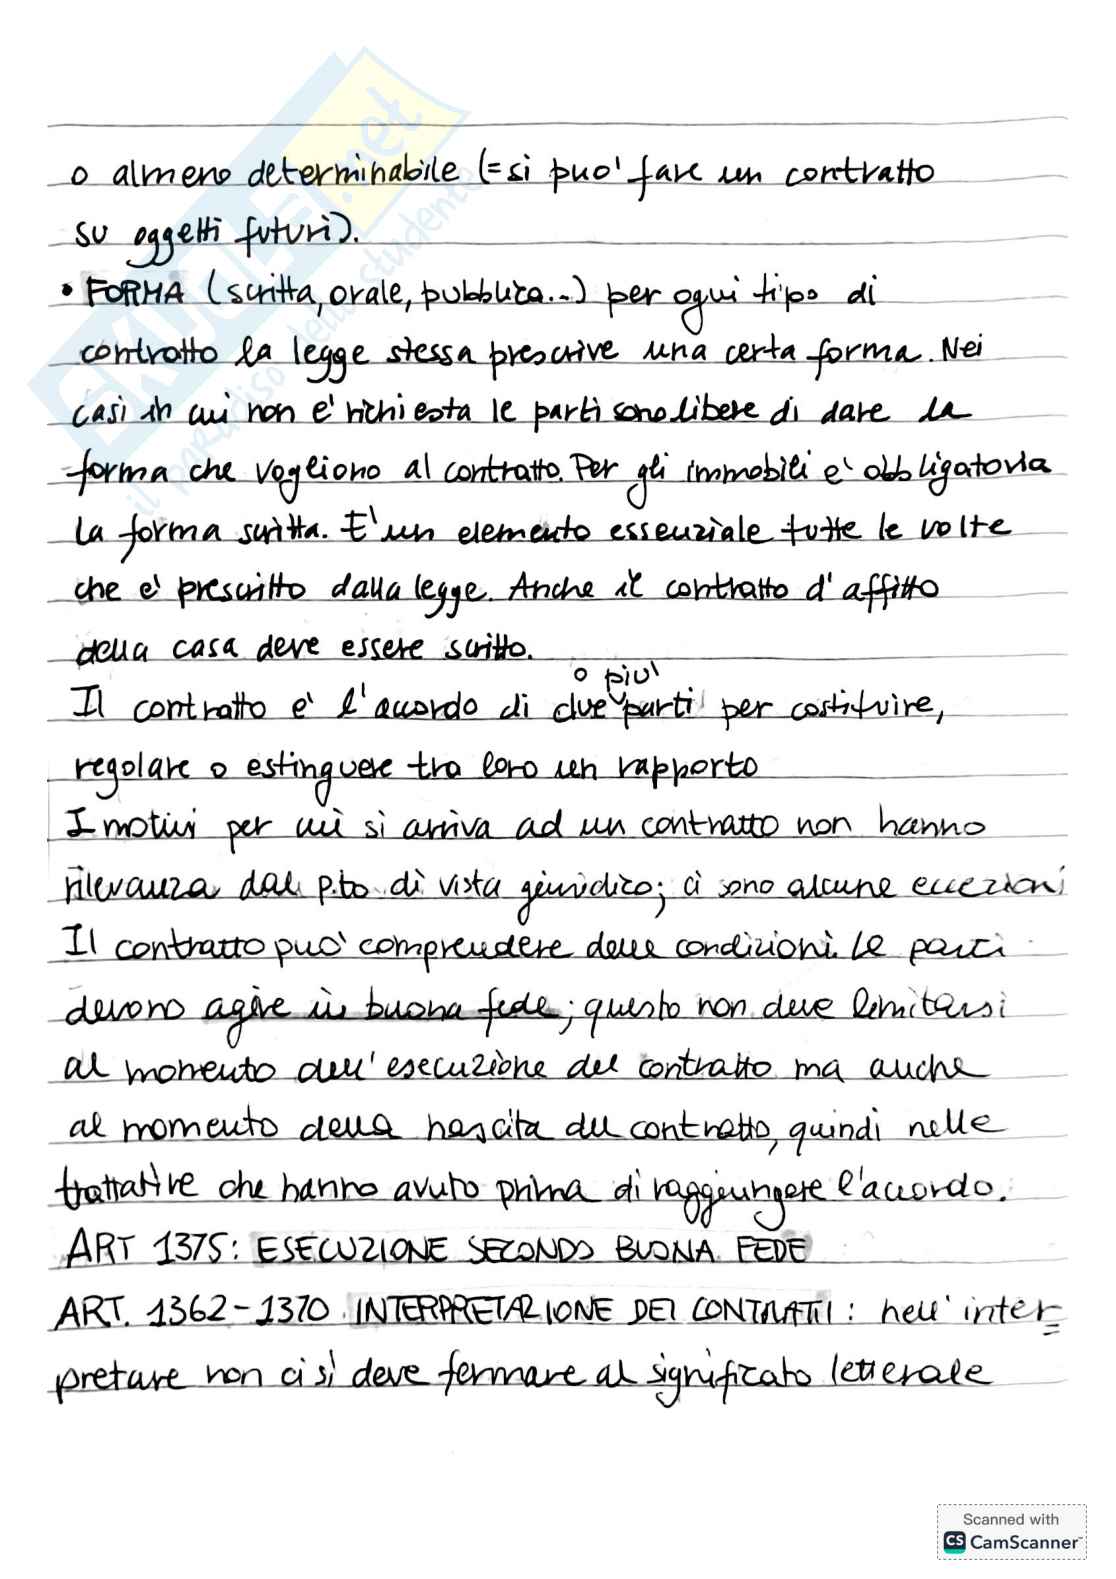 o almeno determinabile (= si puo' fare un contratto
su oggetti futuri).
• FORMA (scritta, orale, pubblica...) per ogni tipo di
contratto la legge stessa prescrive una certa forma. Nei
casi in cui non e' richiesta le parti sono libere di dare la
forma che vogliono al contratto. Per gli immobili e' obbligatoria
la forma scritta. E' un elemento essenziale tutte le volte
che e' prescritto dalla legge. Anche il contratto d'affitto
della casa deve essere scritto.
o piu'
Il contratto e' l'accordo di due parti per costituire,
regolare o estinguere tra loro un rapporto
I motivi per cui si arriva ad un contratto non hanno
rilevanza dal p.to di vista giuridico; ci sono alcune eccezioni
Il contratto puo' comprendere delle condizioni. Le parti
devono agire in buona fede; questo non deve limitarsi
al momento dell'esecuzione del contratto ma anche
al momento della nascita del contratto, quindi nelle
trattative che hanno avuto prima di raggiungere l'accordo.
ART 1375: ESECUZIONE SECONDO BUONA FEDE
ART. 1362-1370 INTERPRETAZIONE DEI CONTRATTI: nell'inter=
pretare non ci si deve fermare al significato letterale
SKUOLA.net
il paradiso dello studente
Scanned with
CS CamScanner